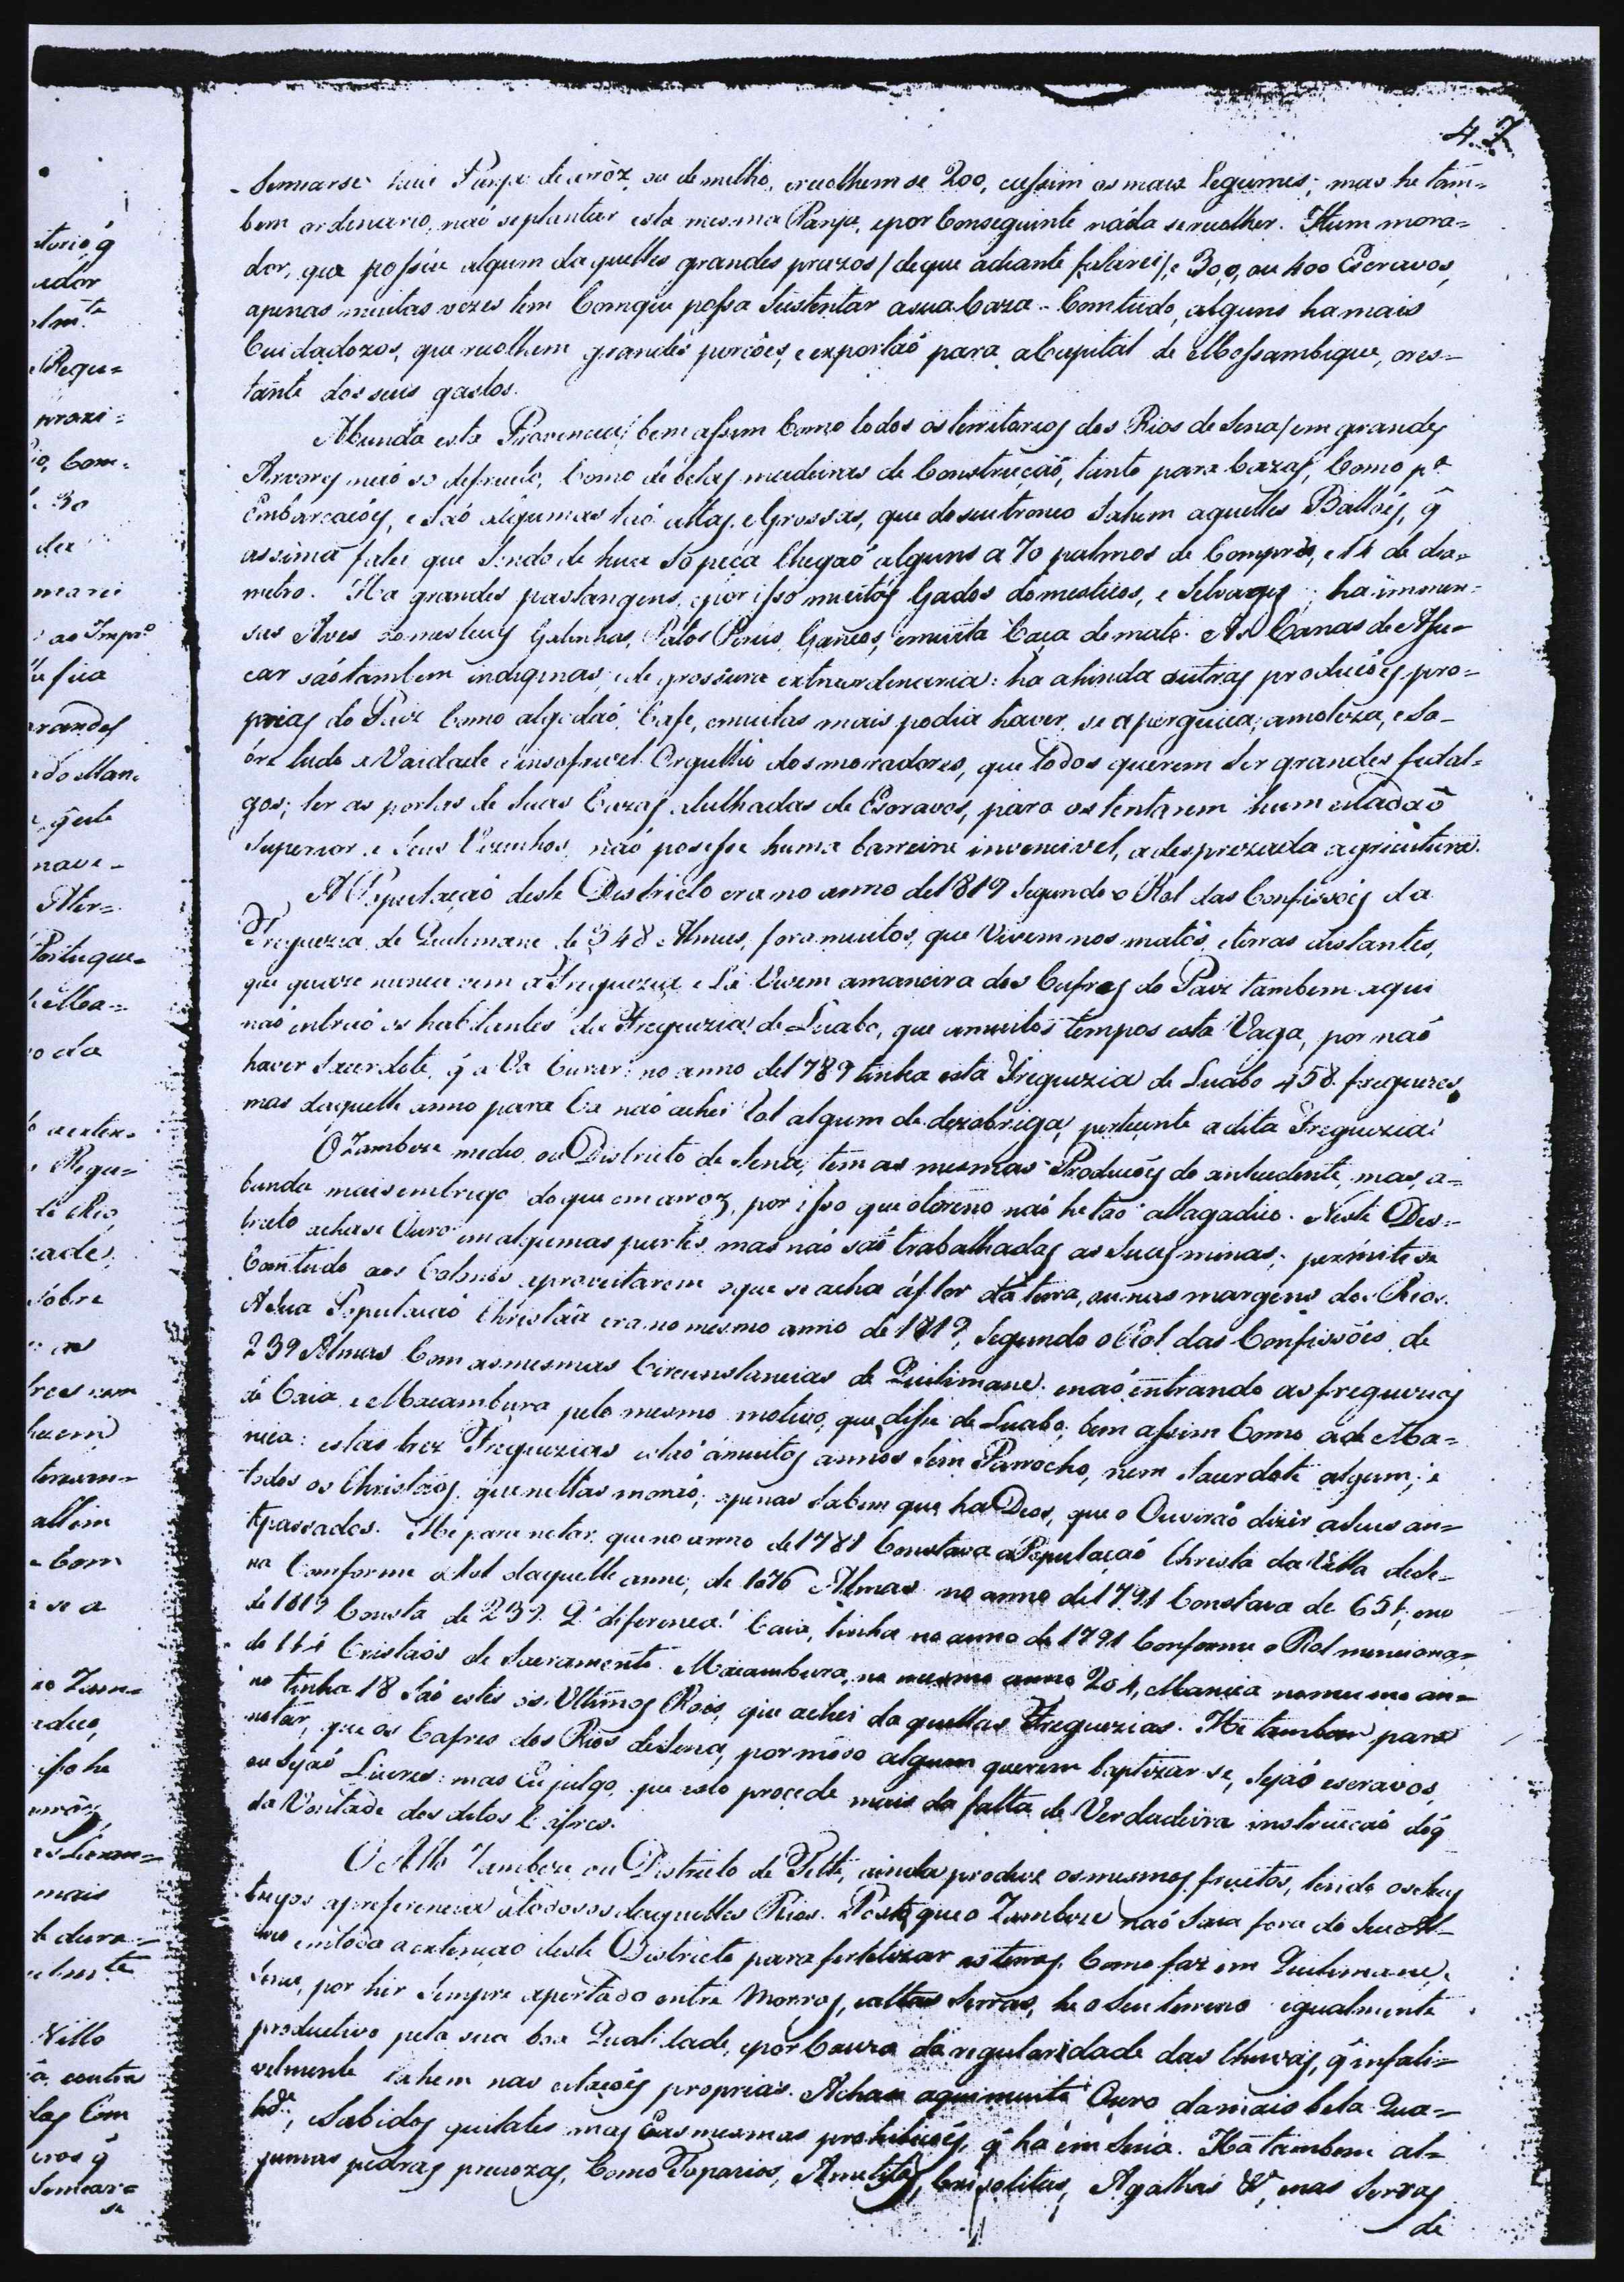 4.7
Semearse huã Panja de arròz, ou de milho, erecolhem se 200, eassim os mais legumes; mas he tam=
bem ordenario, naõ seplantar esta mesma Panja, epor Conseguinte náda serecolher. Hum mora=
dor, que possúe algum daquelles grandes prazos /deque adiante falarei/, e 300, ou 400 Escravos,
apenas muitas vezes tem Comque possa Sustentar asua Caza. Comtudo, alguns ha mais
Cuidadozos, que recolhem grandes porçoẽs, e exportaõ para aCapital de Mossambique, ores=
tante dos seus gastos.
Abunda esta Provencia /bem assim Como todos os territorios dos Rios de Sena/ em grandes
Arvores naõ so defructo, Como de belas madeiras de Construçaõ, tanto para Cazas, Como pª
Embarcaçoẽs, e Saõ algumas taõ altas, eGrossas, que do seu tronco Sahem aquelles Balloẽs, q̃
assima falei que Sendo de hua Só peça Chegaõ alguns a 70 palmos de Comprido, e 14 de dia=
metro. Ha grandes pastangens, epor isso muitos Gados domesticos, e Selvages; ha immen=
sas Aves domesticas Galinhas, Patos Perús, Gansos, emuita Caça de mato. As Canas de Assu=
car saõ tambem indigenas, ede grossura extraordenaria: ha ahinda outras produçoẽs pro=
prias do Paiz Como algodaõ, Cafe, emuitas mais podia haver, se aperguiça, amoleza, e So=
bre tudo a Vaidade e insofrivel Orgulho dos moradores, que todos querem Ser grandes fidal=
gos; ter as portas de Suas Cazas atulhadas de Escravos, para ostentarem hum estadaõ
Superior a Seus Vizinhos, naõ posesse huma barreira invencivel, adesprezada agricultura.
A Populaçaõ deste Districto era no anno de 1819 Segundo o Rol das Confissoẽs da
Freguezia de Quilimane de 548 Almas, fora muitos, que Vivem nos matos, eterras distantes,
que quaze nunca vem á Freguezia, e Lá Vivem amaneira dos Cafres do Paiz tambem aqui
naõ entraõ os habitantes da Freguezia de Luabo, que amuitos tempos está Vaga, por naõ
haver Sacerdote, q̃ a Vá Curar: no anno de 1789 tinha esta Freguezia de Luabo 458 freguezes,
mas daquelle anno para Ca naõ achei Rol algum de dezobriga, pertecente adita Freguezia.
O Zambeze medio, ou Districto de Sena, tem as mesmas Produçoẽs do antecedente, mas, a=
bunda mais em trigo do que em arroz, por isso que oterreno naõ he taõ allagadiço. Neste Des=
tricto achase Ouro em algumas partes, mas naõ saõ trabalhadas as Suas minas; permite se
Comtudo aos Colonos aproveitarem oque se acha áflor da terra, ou nas margens dos Rios.
A Sua Populaçaõ Christaã era no mesmo anno de 1819, Segundo o Rol das Confissoẽs, de
239 Almas Com as mesmas Circunstancias de Quilimane: enaõ entrando as freguezias
de Caia, e Macambura pelo mesmo motivo, que disse de Luabo, bem assim Como ade Ma=
nica: estas trez Freguezias estaõ ámuitos annos Sem Parrocho, nem Sacerdote algum; e
todos os Christaõs, que nellas moraõ, apenas Sabem que ha Deos, que o Ouviraõ dizer aSeus an=
tepassados. He para notar, que no anno de 1781 Constava a Populaçaõ Christã da Villa deSe=
na Comforme oRol daquelle anno, de 1676 Almas no anno de 1791 Constava de 651, eno
de 1819 Consta de 239. Q diferença! Caia, tinha no anno de 1791 Conforme o Rol menciona=
do 114 Cristaõs de Sacramento. Macambura, no mesmo anno 201, Manica no mesmo an=
no tinha 18. Saõ estes os Ultimos Roes, que achei daquellas Freguezias. He tambem para
notar, que os Cafres dos Rios deSena, por módo algum querem baptizar se, Sejaõ escravos,
ou Sejaõ Livres: mas Eu julgo, que isto procede mais da falta de Verdadeira instrucçaõ doq̃
da Vontade dos ditos Cafres.
O Alto Zambeze ou Districto de Tette, ainda produze osmesmos fructos, tendo oseus
trigos apreferencia átodos os daquelles Rios. Posto que o Zambeze naõ Saia fora do Seu Al=
veo emtoda aextençaõ deste Districto para fertelizar as terras, Como faz em Quilimane, e
Sena, por hir Sempre apertado entre Morros, ealtas Serras, he o Seu terreno igualmente
productivo pela sua boa Qualidade, epor Cauza da regularidade das Chuvas, q̃ infali=
velmente Cahem nas estaçoẽs proprias. Achase aqui muito Ouro da mais bela Qua=
lidᵉ, eSubidos quilates mas Com as mesmas prohibiçoẽs, q̃ ha em Sena. Ha tambem al=
gumas pedras preciozas, Como Topazios, Ametistas, Crisolitas, Agathas &ª, enas Serras
de